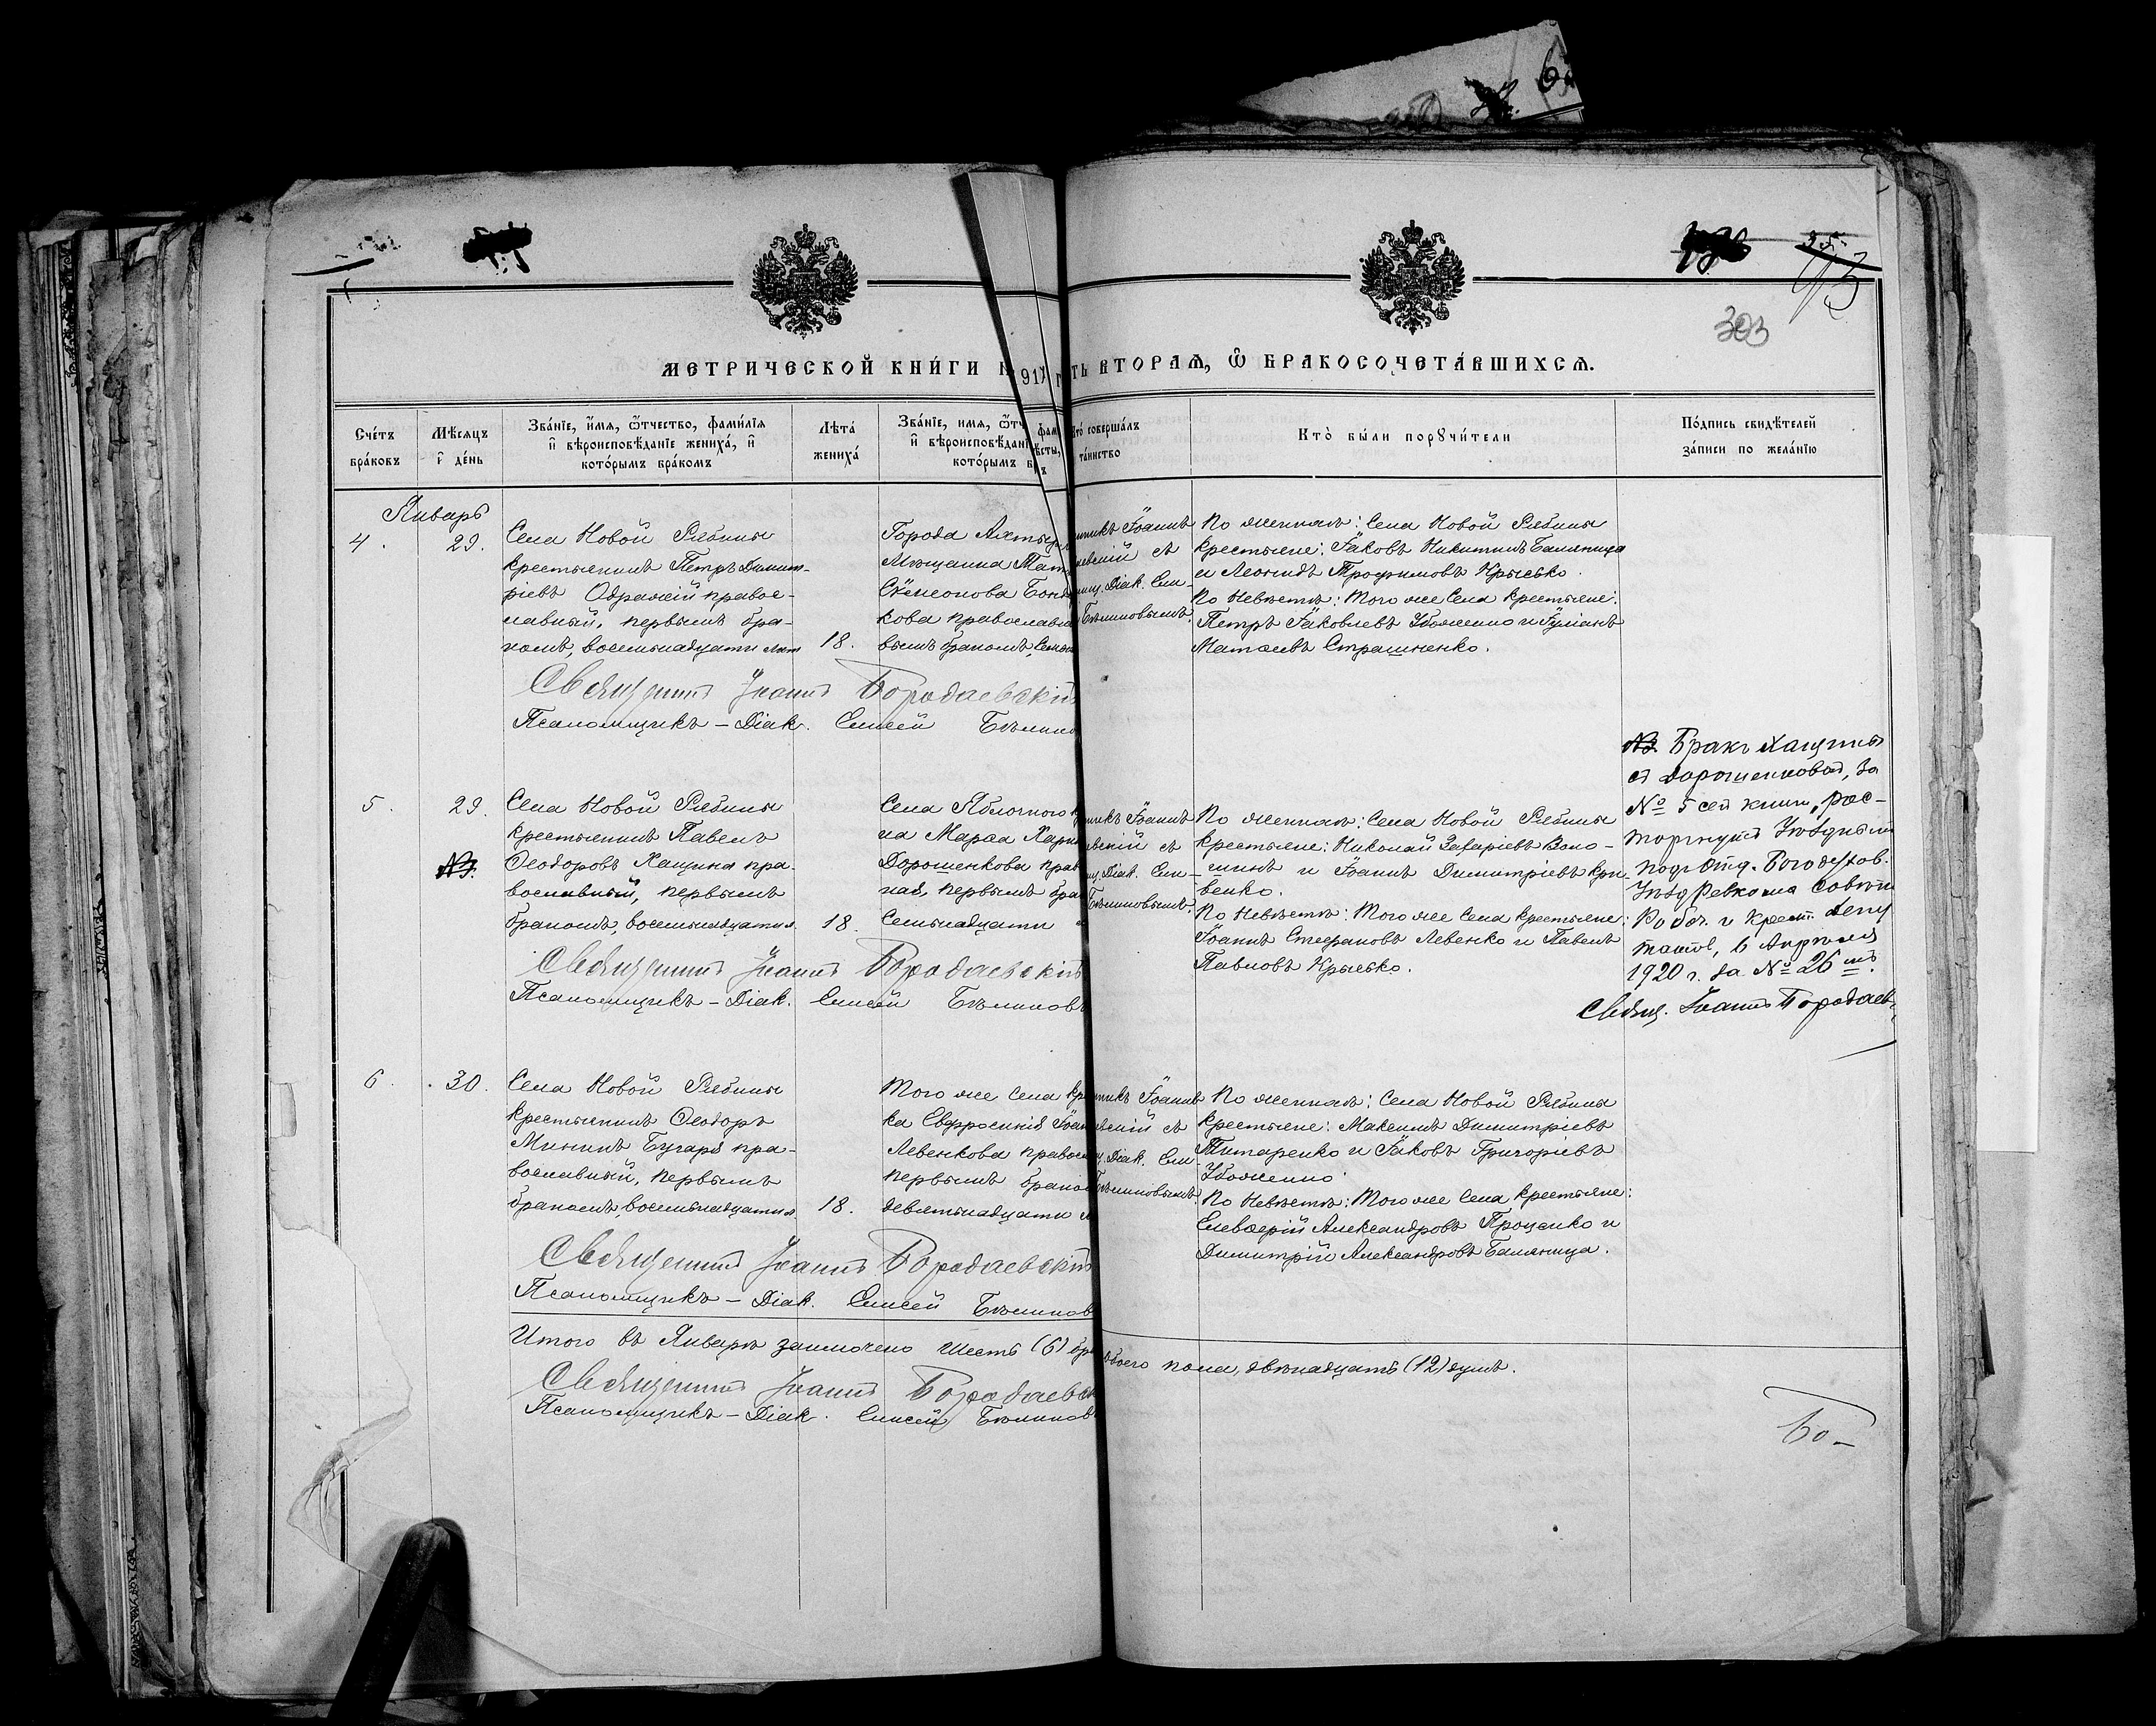 303
МЕТРИЧЕСКОЙ КНИ́ГИ
917
ТЬ ВТОРАѦ, Ѽ БРАКОСОЧЕТА́ВШИХСѦ.
Сче́тъ бра́ковъ
Мѣ́сяцъ и де́нь
Зва́нїе, и́мя, ѻ҆́тчество, фами́лїя и҆ вѣроисповѣ́данїе жениха́, и҆ кото́рымъ бра́комъ
Лѣта́ жениха́
Зва́нїе, имя, ѻ҆тч
и҆ вѣроисповѣ́данї
кото́рымъ б
совершáлъ
та́инство
Кто̀ бы́ли порꙋчи́тели
По́дпись свидѣ́телей за́писи по жела́нїю
Январь
4.
29.
Села Новой Рябины
крестьянинъ Петръ Димит-
ріевъ Одражій правос-
лавный, первымъ бра-
комъ, восемьнадцати лѣтъ
18.
Города Ахтыр
Мѣщанка Тат
Сѵмеонова
кова православ
вымъ бракомъ,
никъ Іоаннъ
евскій съ
Діак. Ели-
Бѣликовымъ.
По женихѣ: Села Новой Рябины
крестьяне: Іаковъ Никитинъ Баляница
и Леонидъ Трофимовъ Крысько.
По Невѣстѣ: Того же Села крестьяне:
Петръ Іаковлевъ Убоженко и Іуліанъ
Матѳіевъ Страшненко.
Священникъ Іоаннъ Бородаевскій
Псаломщикъ – Діак. Елисей Бѣлико
5.
29.
Села Новой Рябины
крестьянинъ Павелъ
Ѳеодоровъ Хащина пра-
вославный, первымъ
бракомъ, восемьнадцати л.
18.
Села Яблочного к
ка Марѳа Хари
Дорошенкова прав
ная, первымъ бра
Семьнадцати
никъ Іоаннъ
евскій съ
Діак. Ели-
Бѣликовымъ.
По женихѣ: Села Новой Рябины
крестьяне: Николай Захаріевъ Воло-
шинъ и Іоаннъ Димитріевъ Кри-
венко.
По Невѣстѣ: Того же Села крестьяне:
Іоаннъ Стефановъ Левенко и Павелъ
Павловъ Крысько.
Бракъ Хащины
съ Дорошенковой, за
№ 5 сей книги, рас-
торгнутъ Уѣзднымъ
подъ Отд. Богодухов.
Уѣзд Ревкома Совѣта
Рабоч. и Крест. Депу
татов, 6 Апрѣля
1920 г. за № 26 мъ.
Священ. Іоаннъ Бородаев
Священникъ Іоаннъ Бородаевскій
Псаломщикъ – Діак. Елисей Бѣликовъ
6.
30.
Села Новой Рябины
крестьянинъ Ѳеодоръ
Мининъ Бугарь пра-
вославный, первымъ
бракомъ, восемьнадцати л.
18.
Того же села кр
ка Евфросинія Іоан
Левенкова правос
первымъ брако
девятьнадцати л
никъ Іоаннъ
евскій съ
Діак. Ели-
Бѣликовымъ.
По женихѣ: Села Новой Рябины
крестьяне: Максимъ Димитріевъ
Титаренко и Іаковъ Григоріевъ
Убоженко
По Невѣстѣ: Того же Села крестьяне:
Елевѳерій Александровъ Проценко и
Димитрій Александровъ Баляница.
Священникъ Іоаннъ Бородаевскій
Псаломщикъ – Діак. Елисей Бѣликов
Итого въ Январѣ заключено шесть (6) бра
обоего пола, двѣнадцать (12) душъ.
Священникъ Іоаннъ Бородаевск
Псаломщикъ – Діак. Елисей Бѣликов
Бо-